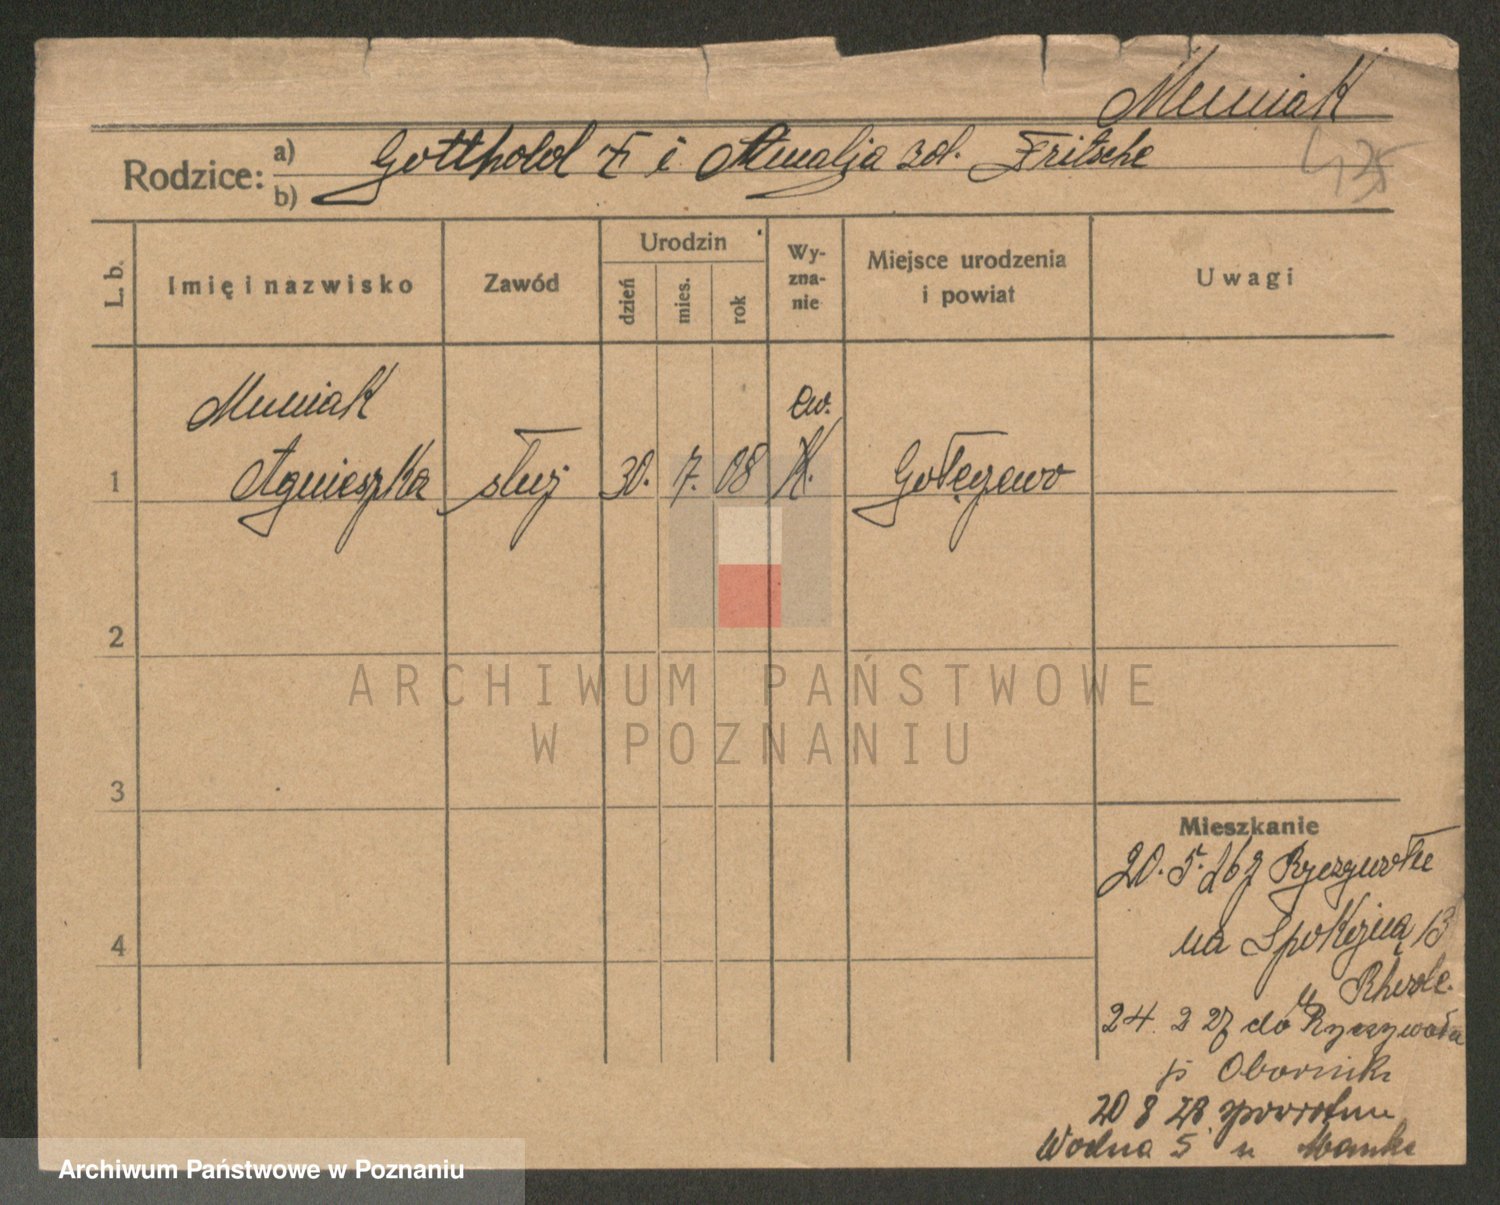 Muniak
Rodzice: a) b) Gotthold F. i Amalja zd. Fritsche
L. b.
Imię i nazwisko
Zawód
Urodzin
dzień
mies.
rok
Wy-
zna-
nie
Miejsce urodzenia
i powiat
Uwagi
Muniak
ew.
1 Agnieszka służ 30. 7. 08 K. Gołęczewo
2
ARCHIWUM PAŃSTWOWE
W POZNANIU
3
Mieszkanie
20. 5. 26 z Ryczywołu
4
na Spokojną 13
u
24. 2 27 do Ryczywoła
p. Oborniki
20 8 28 spowrotem
Wodna 5 u
Archiwum Państwowe w Poznaniu